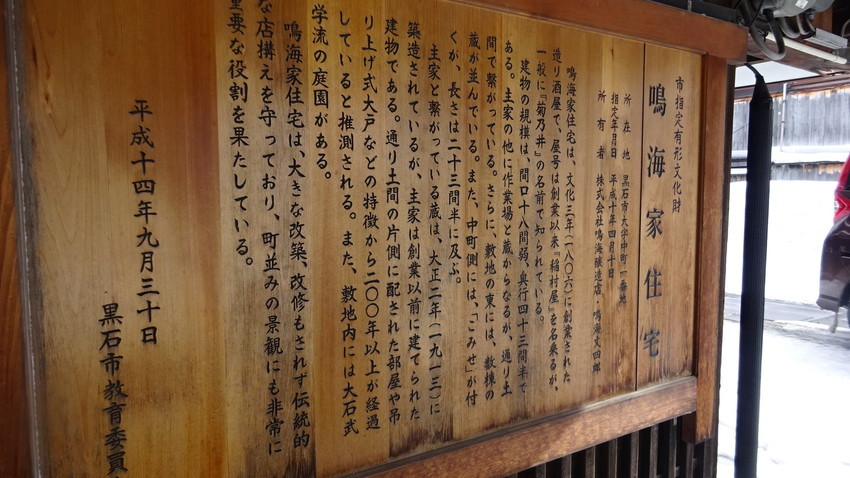 市指定有形文化財
鳴海家住宅
所在地 黒石市大字中町一番地
指定年月日 平成十年四月十日
所有者 株式会社鳴海醸造店・鳴海文四郎
鳴海家住宅は、文化三年(一八〇六)に創業された
造り酒屋で、屋号は創業以来『稲村屋』を名乗るが、
一般に『菊乃井』の名前で知られている。
建物の規模は、間口十八間弱、奥行四十三間半で
ある。主家の他に作業場と蔵からなるが、通り土
間で繋がっている。さらに、敷地の東には、数棟の
蔵が並んでいる。また、中町側には、「こみせ」が付
くが、長さは二十三間半に及ぶ。
主家と繋がっている蔵は、大正二年(一九一三)に
築造されているが、主家は創業以前に建てられた
建物である。通り土間の片側に配された部屋や吊
り上げ式大戸などの特徴から二〇〇年以上が経過
していると推測される。また、敷地内には大石武
学流の庭園がある。
鳴海家住宅は、大きな改築、改修もされず伝統的
な店構えを守っており、町並みの景観にも非常に
重要な役割を果たしている。
平成十四年九月三十日
黒石市教育委員